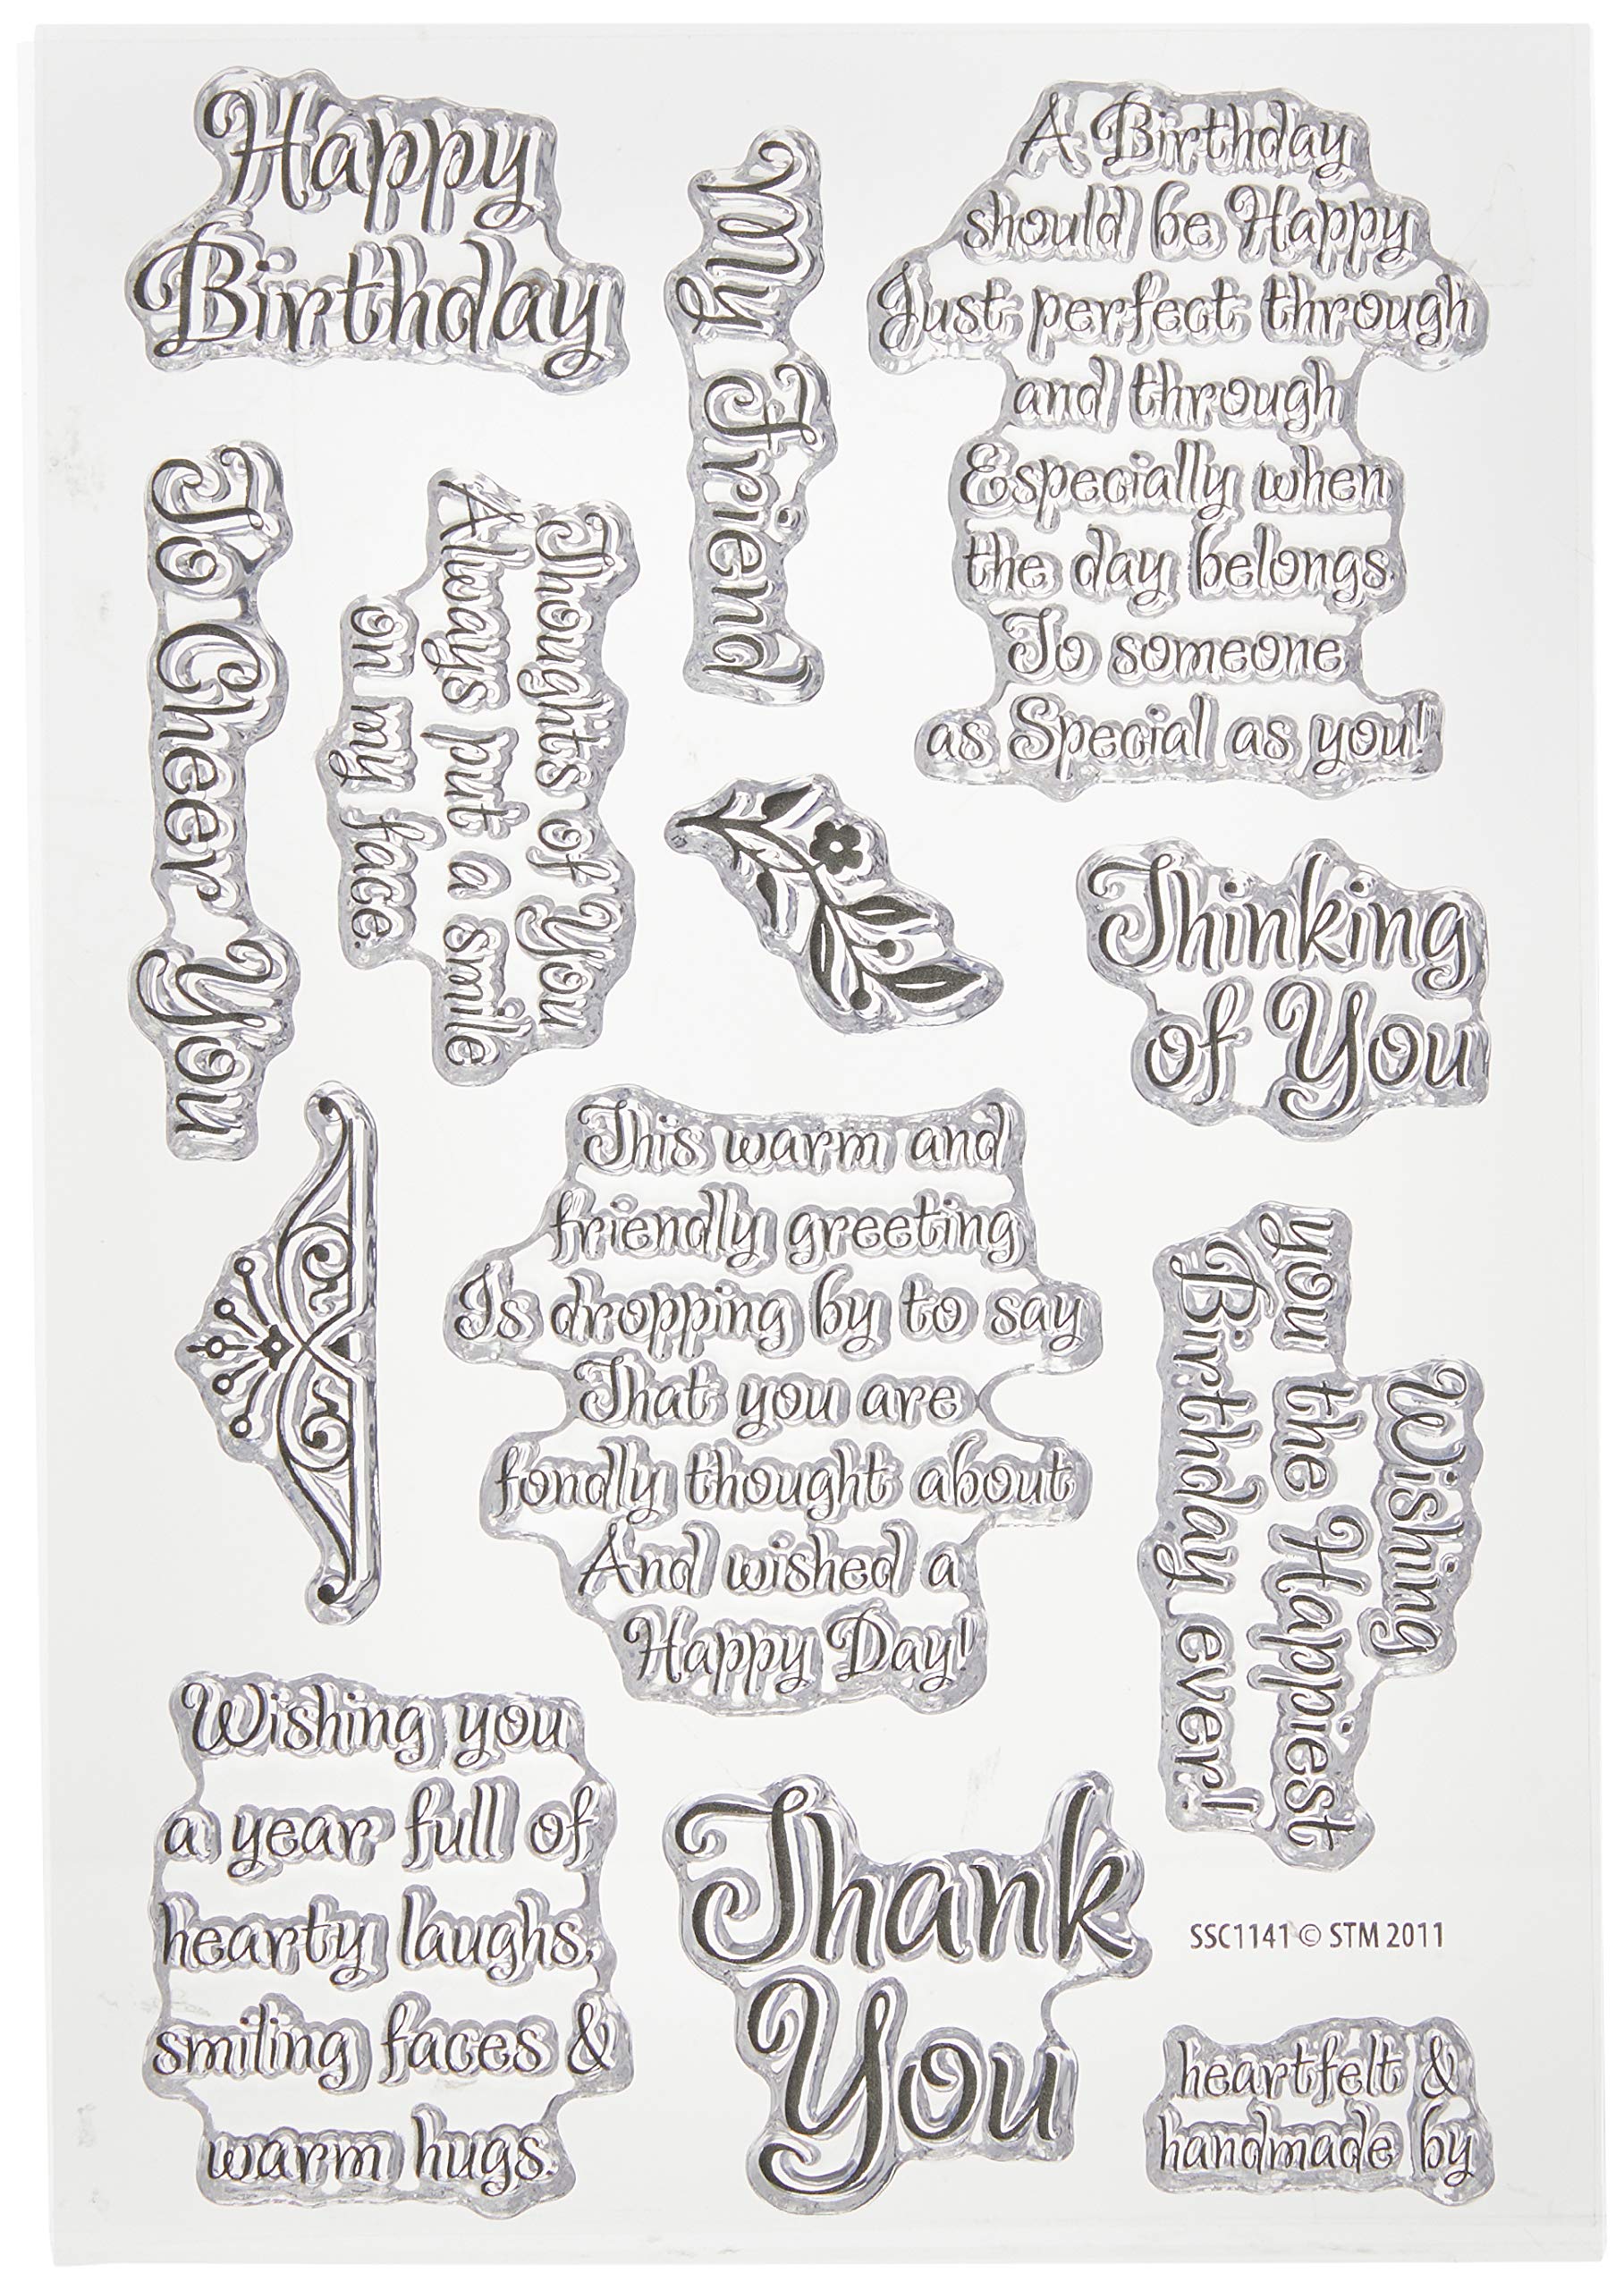 Happy
Birthday
My Friend
A Birthday
should be Happy
Just perfect through
and through
Especially when
the day belongs
To someone
as Special as you!
To Cheer You
Thoughts of You
Always put a smile
on my face.
Thinking
of You
This warm and
friendly greeting
Is dropping by to say
That you are
fondly thought about
And wished a
Happy Day!
Wishing
you the Happiest
Birthday ever!
Wishing you
a year full of
hearty laughs,
smiling faces &
warm hugs.
Thank
You
SSC1141 © STM 2011
heartfelt &
handmade by